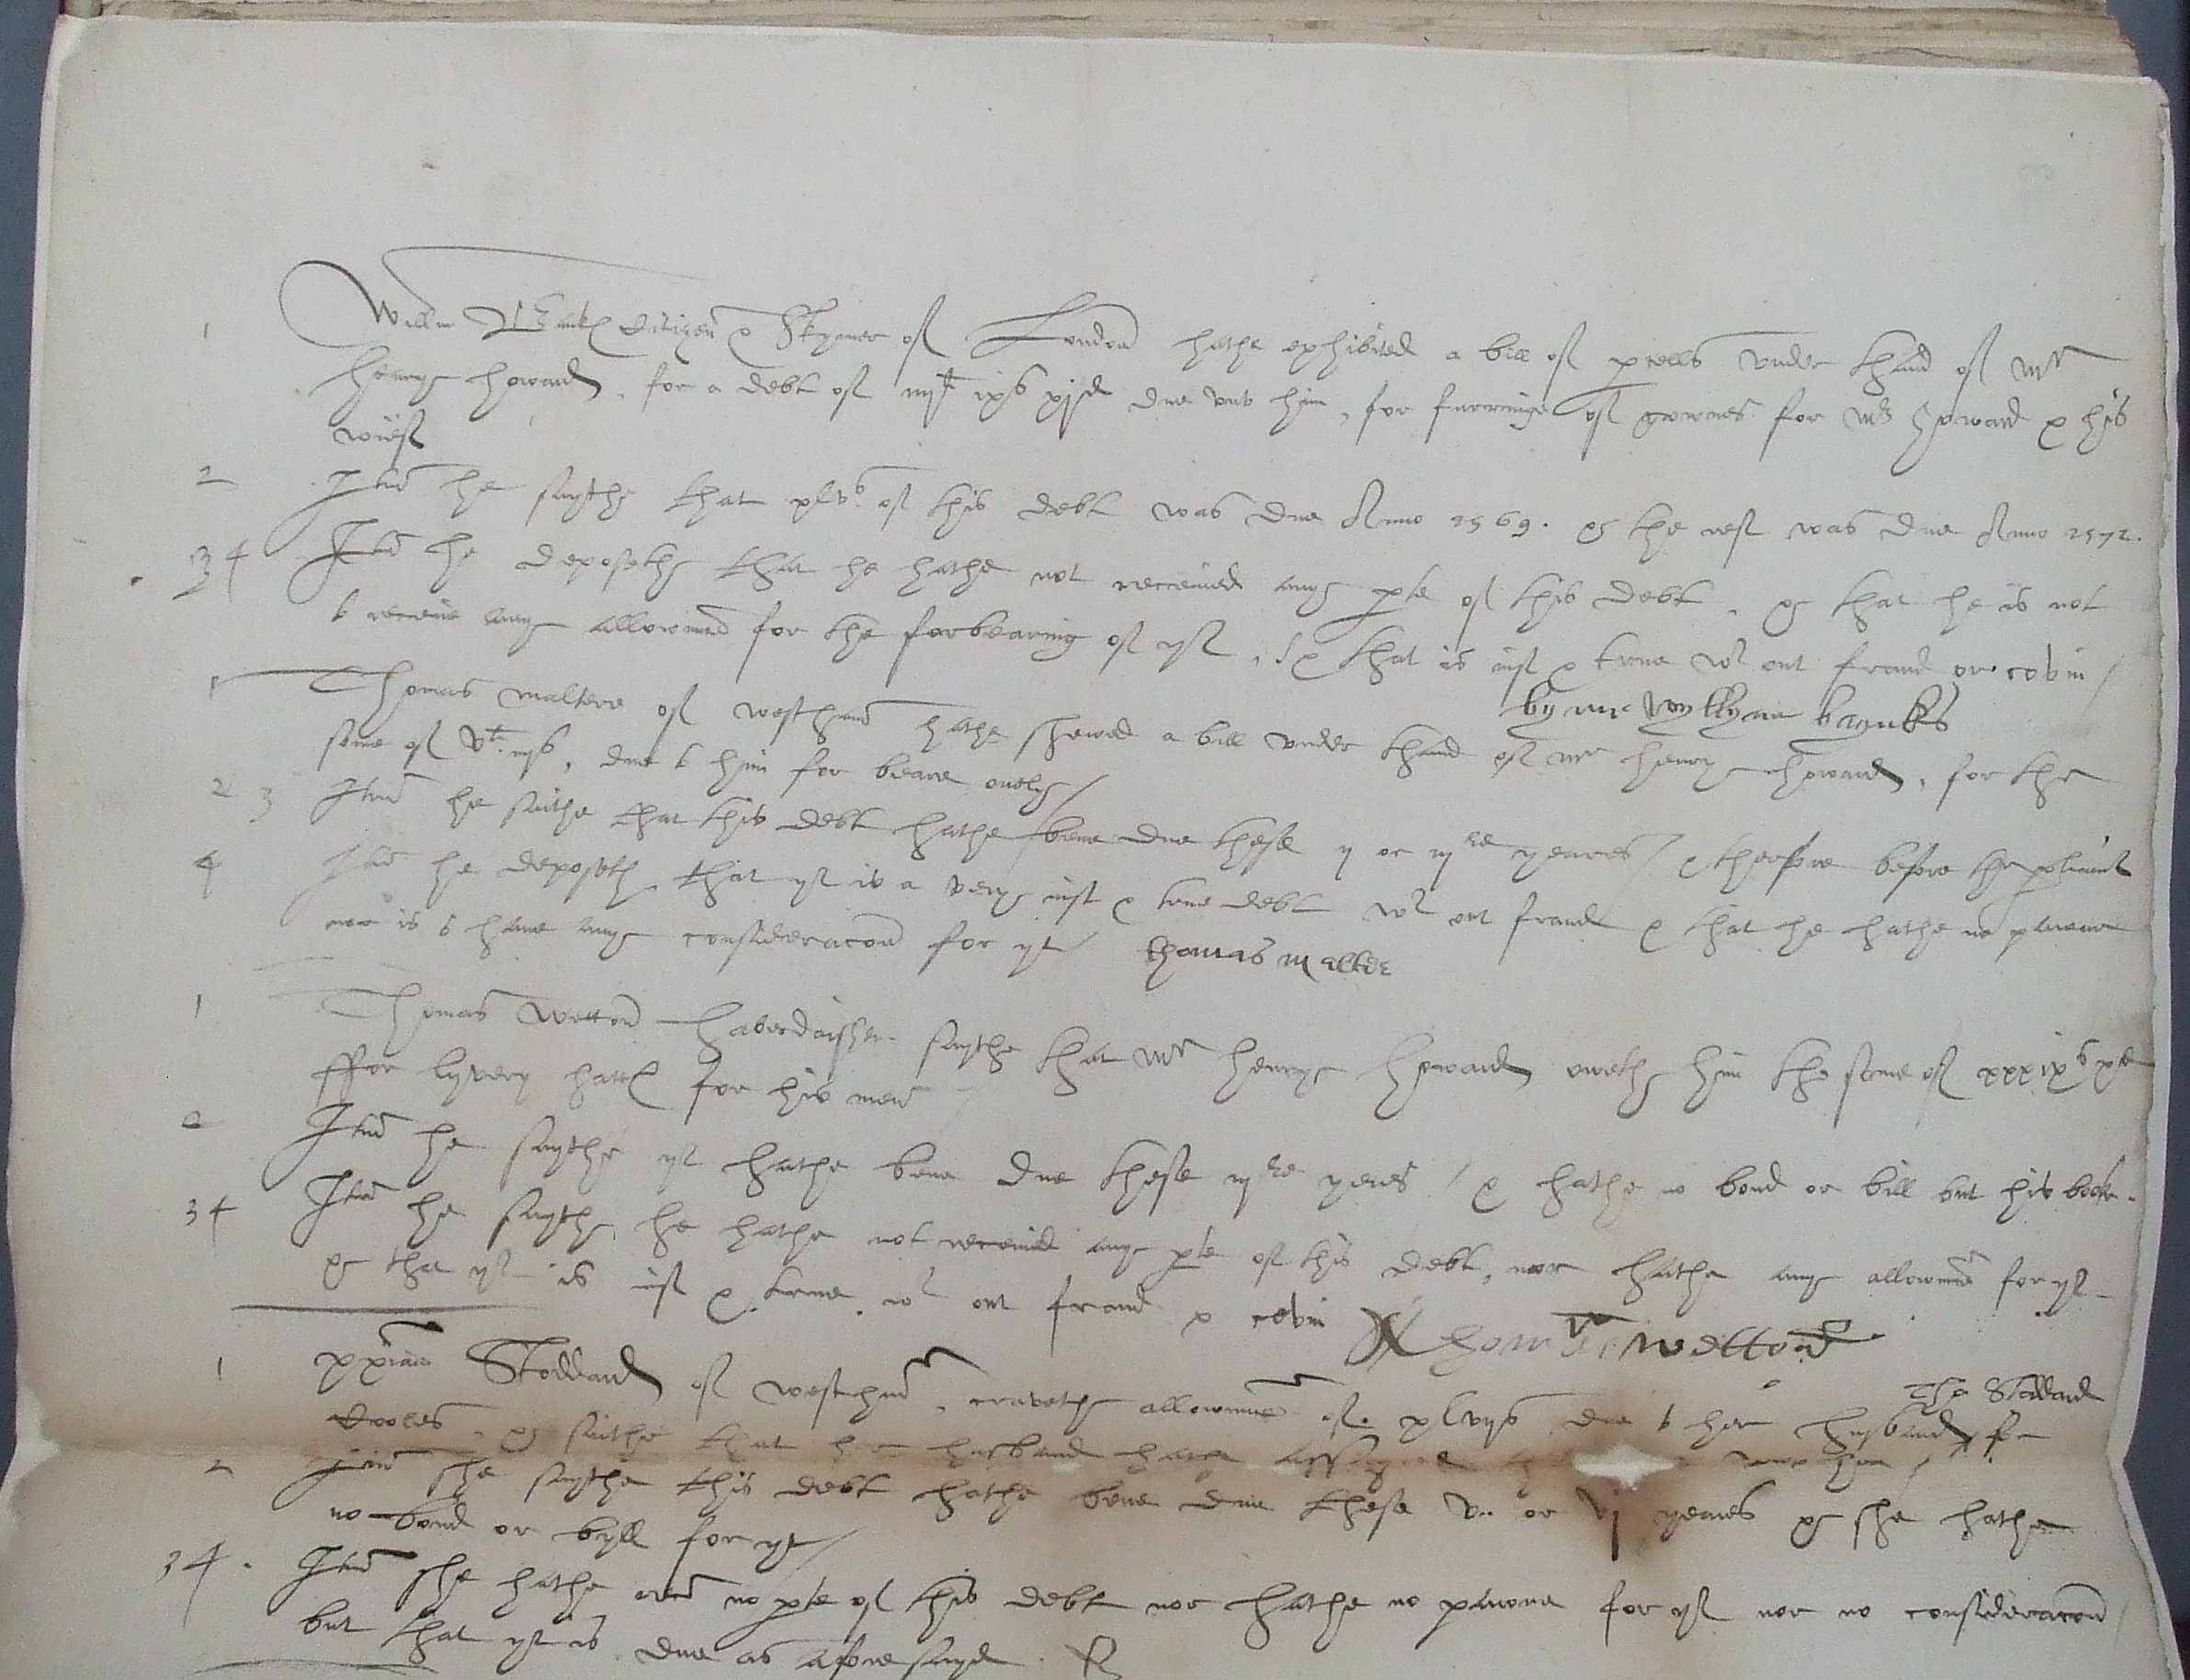 1 Willm Bankes Citizen & Skynner of London hathe exhibited a bill of pcells under thand of Mr
henrye howard, for a debt of iiijli ixs xjd due unto him, for furringe of gownes for Mr howard & his
wief
2 Itm he saythe that xls of this debt was due Anno 1569. & the rest was due Anno 1572.
3 4 Itm he deposethe that he hathe not received anye pte of this debt, & that he is not
to receive anye allowance for the forbearing of yt, & that is iust & true wt out fraud or covin /
by me Wyllyam banks
1 Thomas maltere of westham hathe shewed a bill under thand of Mr henrye howard, for the
some of vli iijs, due to him for beare onely /
2 3 Itm he saithe that this debt hathe bene due these ij or iijre yeares / & therfore before the
4 Itm he deposeth that yt is a verye iust & true debt wt out fraud & that he hathe no pawne
nor is to have anye consideracon for yt / thomas maltere
1 Thomas Wetton haberdaisher saythe that Mr henrye howard owethe him the some of xxxixs xd
ffor lyvery hatts for his men /
2 Itm he saythe yt hathe bene due these iijre yeres / & hathe no bond or bill but his booke.
3 4 Itm he saythe he hathe not received anye pte of this debt, nor hathe anye allowance for yt
& that yt is iust & true wt out fraud & covin Thomas wetton
1 xpian Stoddard of westham, cravethe allowance of xlvijs due to her husband Tho Stoddard for
& saithe that her husband hathe assigned
2 Itm she saythe this debt hathe bene due these v. or vj yeares & she hathe
no bond or byll for yt /
3 4. Itm she hathe recd no pte of this debt nor hathe no pawne for yt nor no consideracon
but that yt is due as aforesayd.